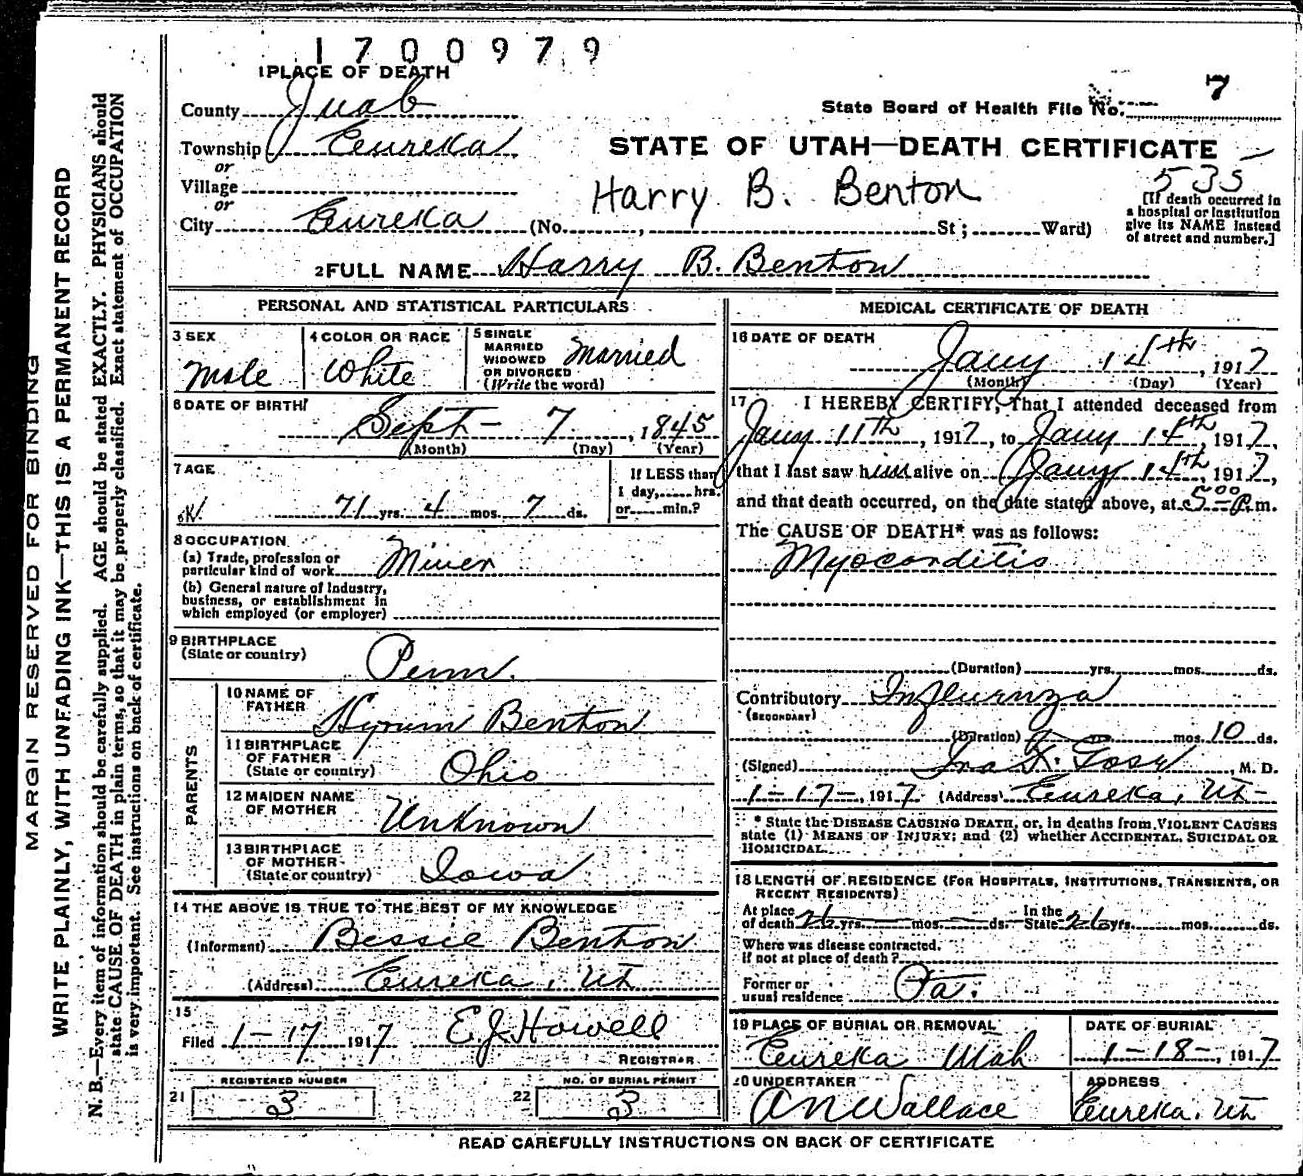 1700979
1 PLACE OF DEATH
7
County Juab
State Board of Health File No.
Township Eureka
STATE OF UTAH—DEATH CERTIFICATE
or
Village
535
or
Harry B. Benton
[If death occurred in a hospital or institution give its NAME instead of street and number.]
City Eureka (No. , St; Ward)
2 FULL NAME Harry B. Benton
PERSONAL AND STATISTICAL PARTICULARS
3 SEX Male
4 COLOR OR RACE White
5 SINGLE MARRIED WIDOWED OR DIVORCED (Write the word) Married
6 DATE OF BIRTH
Sept- 7, 1845
(Month) (Day) (Year)
7 AGE
71 yrs. 4 mos. 7 ds.
If LESS than 1 day, hrs. or min.?
8 OCCUPATION
(a) Trade, profession or particular kind of work Miner
(b) General nature of Industry, business, or establishment in which employed (or employer)
9 BIRTHPLACE
(State or country) Penn.
PARENTS
10 NAME OF FATHER Hyrum Benton
11 BIRTHPLACE OF FATHER (State or country) Ohio
12 MAIDEN NAME OF MOTHER Unknown
13 BIRTHPLACE OF MOTHER (State or country) Iowa
14 THE ABOVE IS TRUE TO THE BEST OF MY KNOWLEDGE
(Informant) Bessie Benton
(Address) Eureka, Ut
15
Filed 1-17 1917 E.J. Howell
REGISTRAR
21 REGISTERED NUMBER 3
22 NO. OF BURIAL PERMIT 3
MEDICAL CERTIFICATE OF DEATH
16 DATE OF DEATH
Jany 14th, 1917
(Month) (Day) (Year)
17 I HEREBY CERTIFY, That I attended deceased from
Jany 11th, 1917, to Jany 14th, 1917,
that I last saw him alive on Jany 14th, 1917,
and that death occurred, on the date stated above, at 5:00 P.m.
The CAUSE OF DEATH* was as follows:
Myocarditis
(Duration) yrs. mos. ds.
Contributory Influenza
(SECONDARY)
(Duration) mos. 10 ds.
(Signed) Ira F. M. D.
1-17-, 1917 (Address) Eureka, Ut-
* State the DISEASE CAUSING DEATH, or, in deaths from VIOLENT CAUSES
state (1) MEANS OF INJURY; and (2) whether ACCIDENTAL, SUICIDAL OR
HOMICIDAL.
18 LENGTH OF RESIDENCE (FOR HOSPITALS, INSTITUTIONS, TRANSIENTS, OR
RECENT RESIDENTS)
At place of death 26 yrs. mos. ds. In the State 26 yrs. mos. ds.
Where was disease contracted,
if not at place of death?
Former or usual residence Pa.
19 PLACE OF BURIAL OR REMOVAL Eureka Utah
DATE OF BURIAL 1-18-, 1917
20 UNDERTAKER A N Wallace
ADDRESS Eureka, Ut
READ CAREFULLY INSTRUCTIONS ON BACK OF CERTIFICATE
MARGIN RESERVED FOR BINDING
WRITE PLAINLY, WITH UNFADING INK—THIS IS A PERMANENT RECORD
N. B.—Every item of information should be carefully supplied. AGE should be stated EXACTLY. PHYSICIANS should
state CAUSE OF DEATH in plain terms, so that it may be properly classified. Exact statement of OCCUPATION
is very important. See instructions on back of certificate.